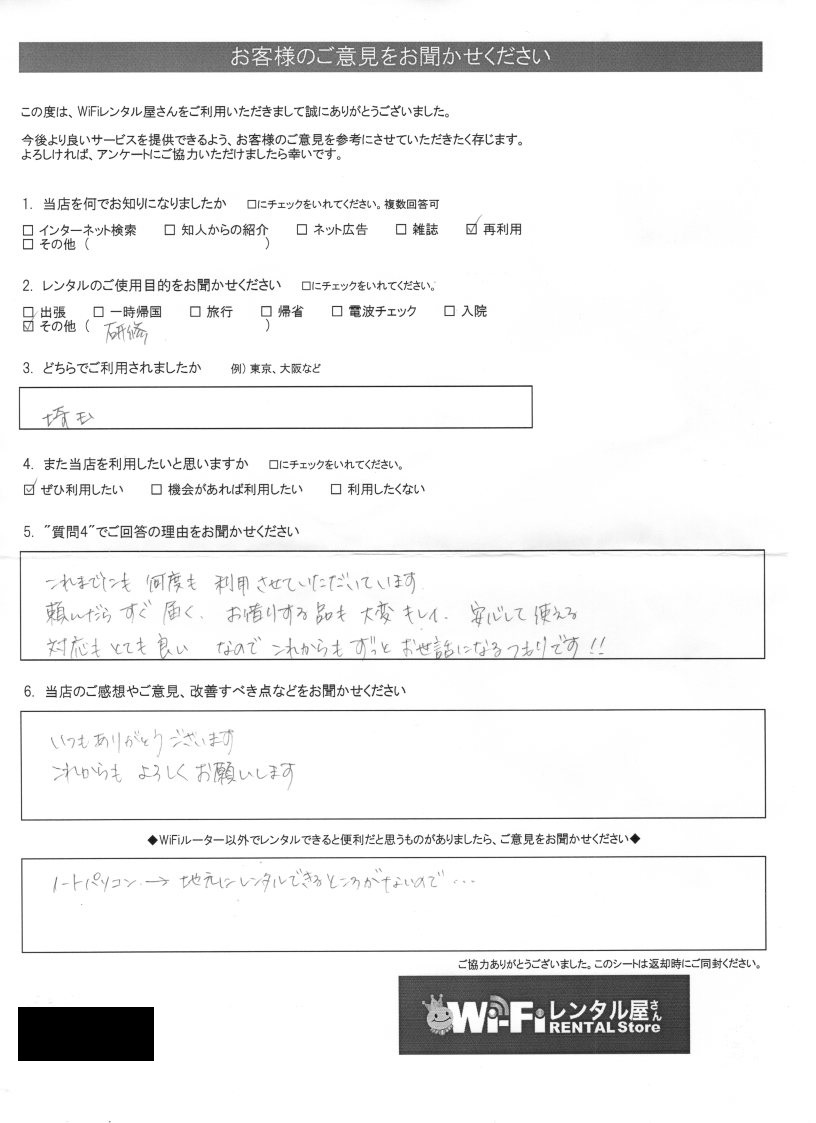 お客様のご意見をお聞かせください
この度は、WiFiレンタル屋さんをご利用いただきまして誠にありがとうございました。
今後より良いサービスを提供できるよう、お客様のご意見を参考にさせていただきたく存じます。
よろしければ、アンケートにご協力いただけましたら幸いです。
1. 当店を何でお知りになりましたか □にチェックをいれてください。複数回答可
□ インターネット検索 □ 知人からの紹介 □ ネット広告 □ 雑誌 ☑ 再利用
□ その他 ( )
2. レンタルのご使用目的をお聞かせください □にチェックをいれてください。
□ 出張 □ 一時帰国 □ 旅行 □ 帰省 □ 電波チェック □ 入院
☑ その他 ( 研修 )
3. どちらでご利用されましたか 例)東京、大阪など
埼玉
4. また当店を利用したいと思いますか □にチェックをいれてください。
☑ ぜひ利用したい □ 機会があれば利用したい □ 利用したくない
5. "質問4"でご回答の理由をお聞かせください
これまでにも 何度も 利用させていただいています
頼んだら すぐ 届く、お借りする品も 大変 キレイ、安心して 使える
対応もとても良い なので これからも ずっと お世話になるつもりです!!
6. 当店のご感想やご意見、改善すべき点などをお聞かせください
いつもありがとうございます
これからも よろしく お願いします
◆WiFiルーター以外でレンタルできると便利だと思うものがありましたら、ご意見をお聞かせください◆
ノートパソコン → 地元にレンタルできるところがないので…
ご協力ありがとうございました。このシートは返却時にご同封ください。
Wi-Fi レンタル屋さん
RENTAL Store